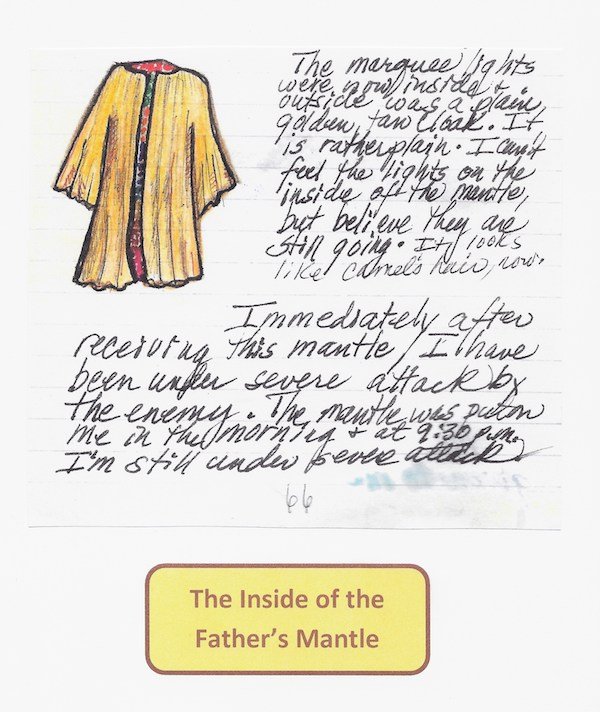 The marquee lights
were now inside &
outside was a plain,
golden, tan cloak. It
is rather plain. I can't
feel the lights on the
inside of the mantle,
but believe they are
still going. It looks
like camel's hair, now.
Immediately after
receiving this mantle, I have
been under severe attack by
the enemy. The mantle was put on
me in the morning & at 9:30 p.m.
I'm still under severe attack
66
The Inside of the
Father's Mantle